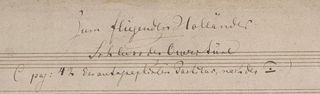 Zum fliegenden Holländer
Schluss der Ouvertüre
( pag: 42 der autographirten Partitur, nach der